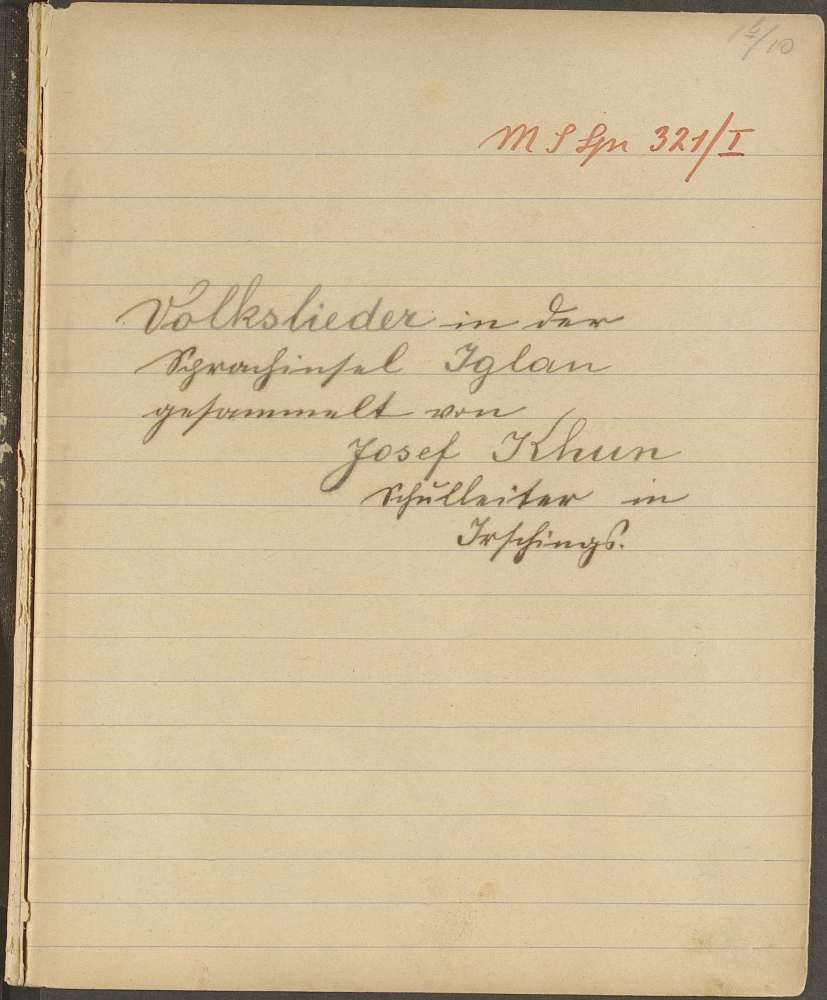 M S Spr 321/I
Volkslieder in der
Sprachinsel Iglau
gesammelt von
Josef Khun
Schulleiter in
Irschings.